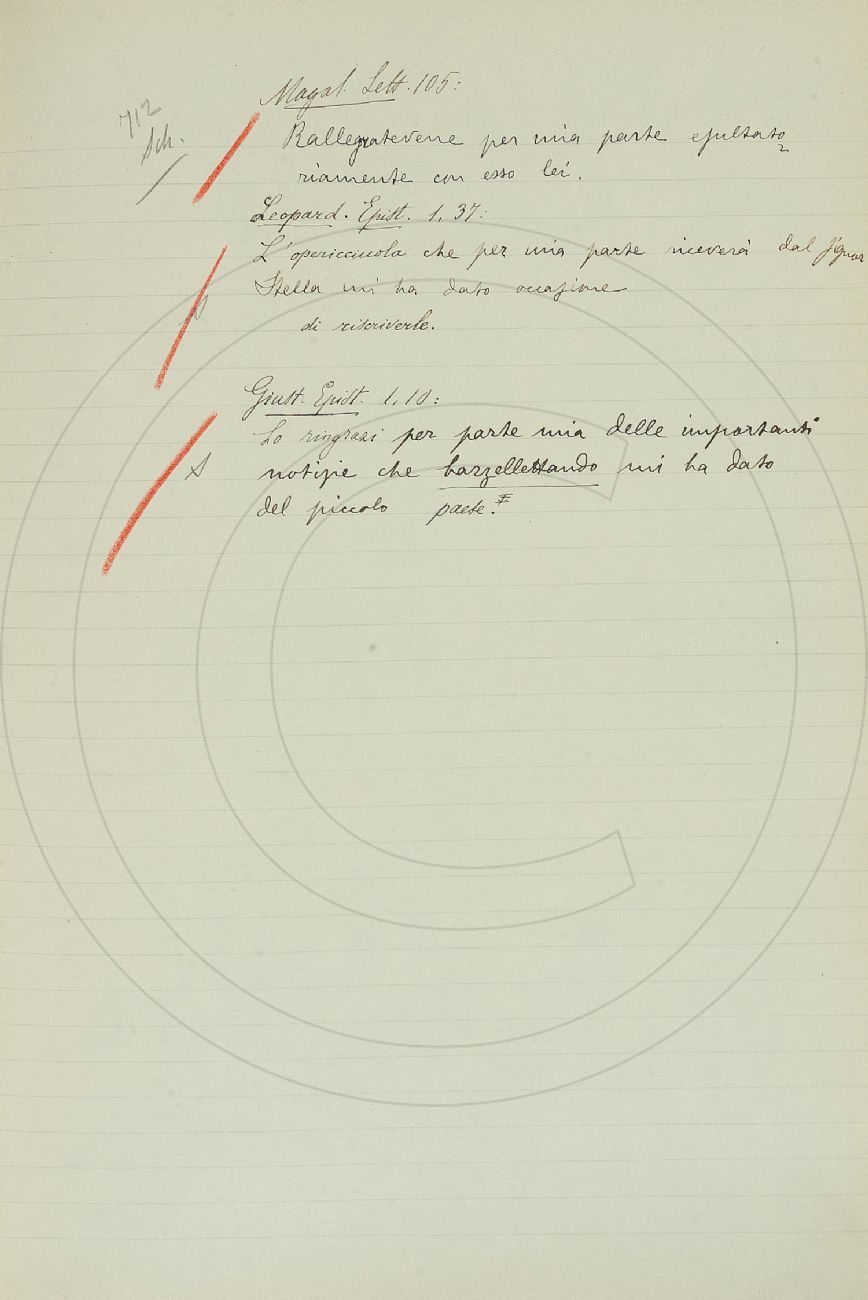 712
Sch.
Magal. Lett. 105:
Rallegratevene per mia parte esultato
riamente con esso lei.
Leopard. Epist. 1, 37:
L'opericciuola che per mia parte riceverà dal signor
Stella mi ha dato occasione
di riscriverle.
Giust. Epist. 1, 10:
Lo ringrazi per parte mia delle importanti
S notizie che barzellettando mi ha dato
del piccolo paese.